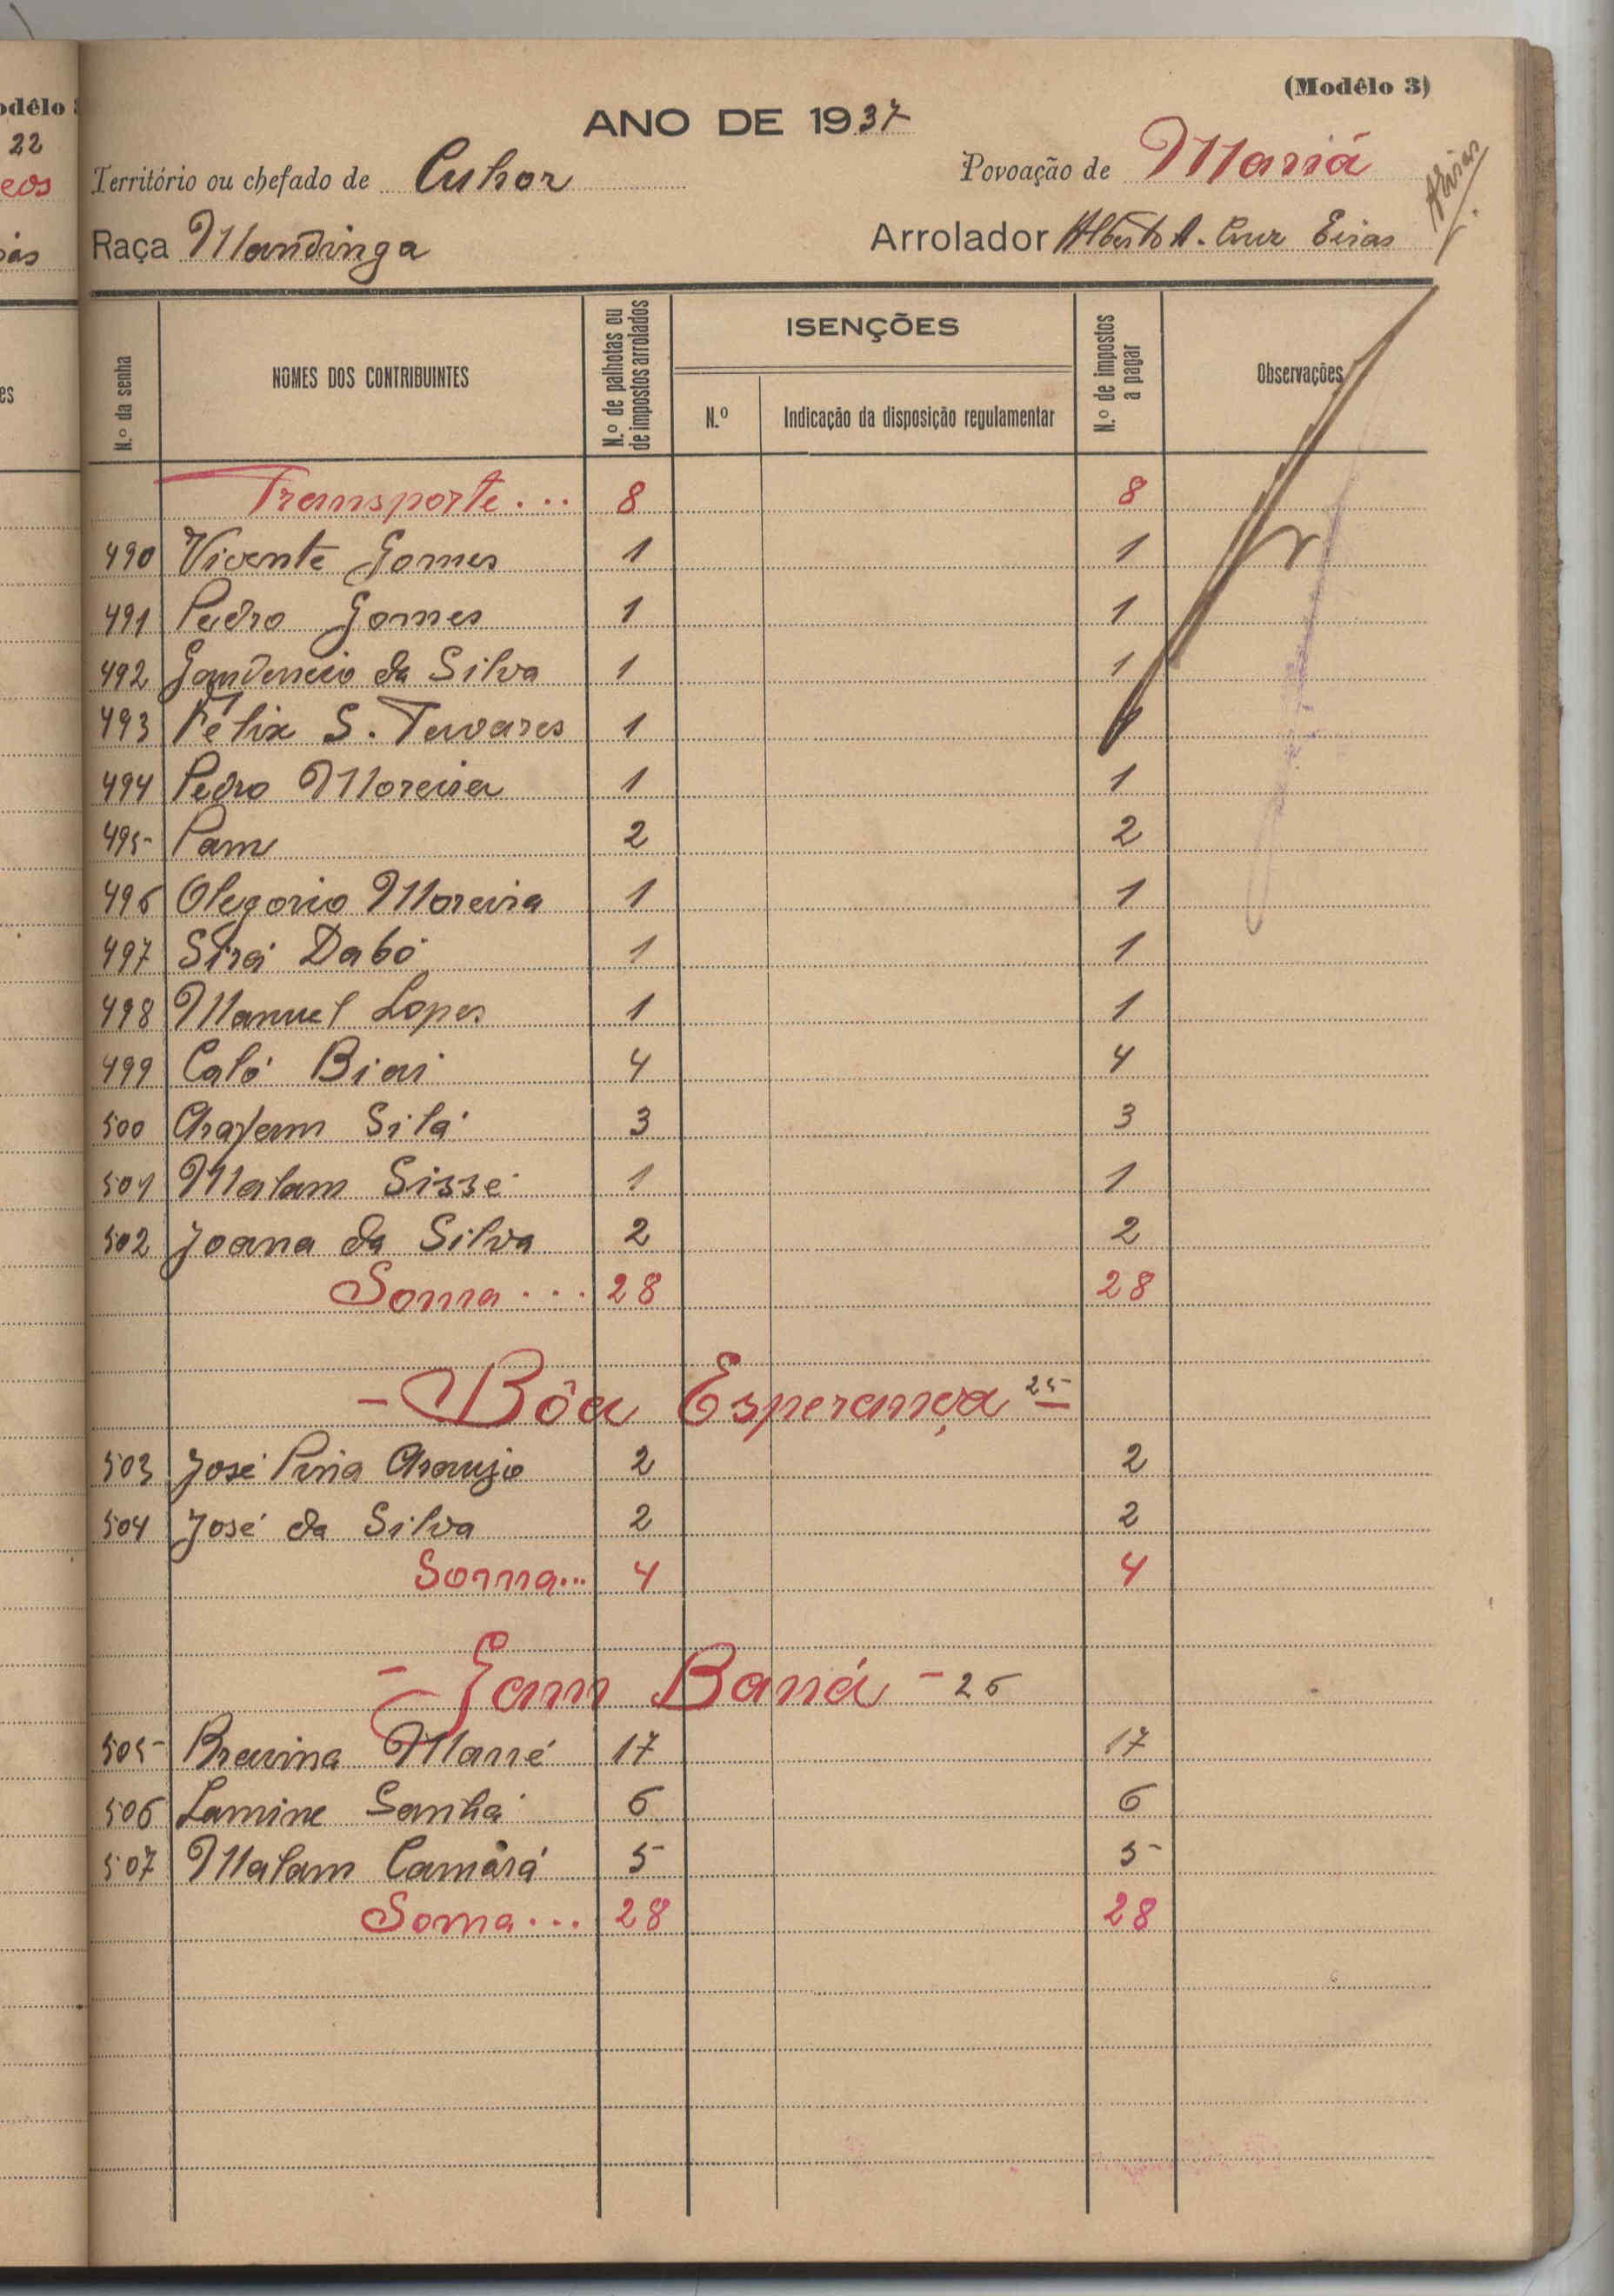 odêlo
22
eos
(Modêlo 3)
ANO DE 1937
Território ou chefado de Cuhor
Povoação de Maná
Raça Mandinga
Arrolador Alberto A. Cruz Eiras
Eiras
N.º da senha
NOMES DOS CONTRIBUINTES
N.º de palhotas ou de impostos arrolados
ISENÇÕES
N.º
Indicação da disposição regulamentar
N.º de impostos a pagar
Observações
Transporte... 8 8
490 Vicente Gomes 1 1
491 Pedro Gomes 1 1
492 Gaudencio da Silva 1 1
493 Félix S. Tavares 1 1
494 Pedro Moreira 1 1
495 Pam 2 2
496 Olegorio Moreira 1 1
497 Sirá Dabó 1 1
498 Manuel Lopes 1 1
499 Caló Biai 4 4
500 Arafam Silá 3 3
501 Malam Sissé 1 1
502 Joana da Silva 2 2
Soma... 28 28
- Bôa Esperança 25 -
503 José Pina Araujo 2 2
504 José da Silva 2 2
Somma... 4 4
- Gam Baná - 26
505 Braima Mané 17 17
506 Lamine Sanhá 6 6
507 Malam Camará 5 5
Soma... 28 28